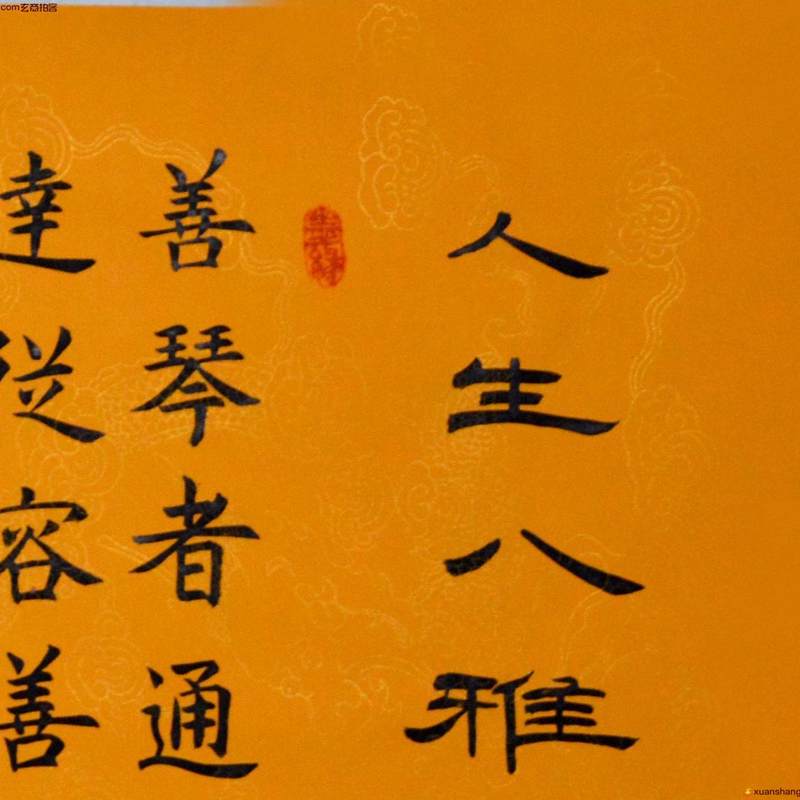 人生八雅
善琴者通
達從容善
com玄商拍客
xuanshang